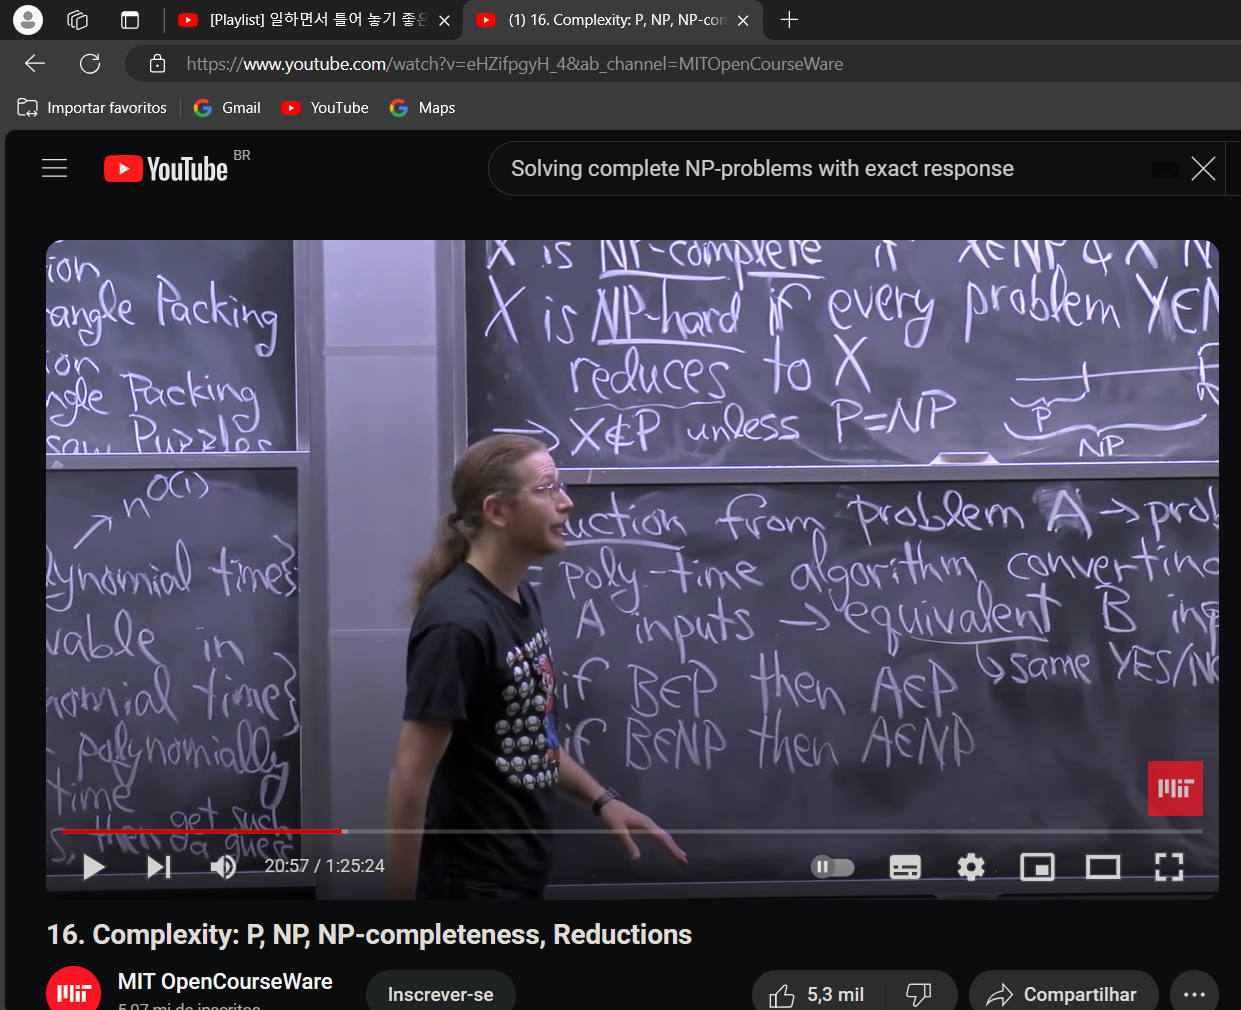 [Playlist] 일하면서 틀어 놓기 좋은
(1) 16. Complexity: P, NP, NP-con
https://www.youtube.com/watch?v=eHZifpgyH_4&ab_channel=MITOpenCourseWare
Importar favoritos
Gmail
YouTube
Maps
YouTube BR
Solving complete NP-problems with exact response
ion
angle Packing
ion
ngle Packing
saw Puzzles
n^O(1)
lynomial time}
vable in
nomial time}
polynomially
time
get such
s, then guess
X is NP-complete if X∈NP & X N
X is NP-hard if every problem Y∈N
reduces to X
→ X∉P unless P=NP
P
NP
uction from problem A → prob
= poly-time algorithm converting
A inputs → equivalent B inp
↳ same YES/NO
if B∈P then A∈P
if B∈NP then A∈NP
MIT
20:57 / 1:25:24
16. Complexity: P, NP, NP-completeness, Reductions
MIT
MIT OpenCourseWare
5,07 mi de inscritos
Inscrever-se
5,3 mil
Compartilhar